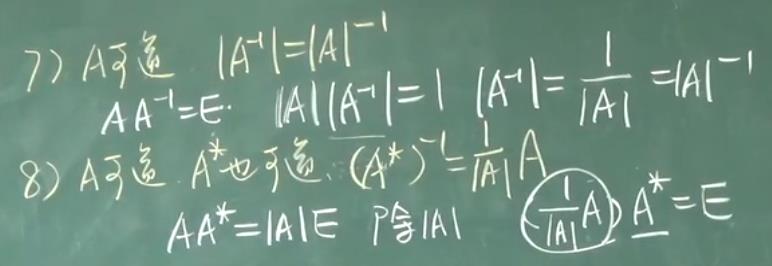 7) A可逆 |A⁻¹|=|A|⁻¹
AA⁻¹=E. |A||A⁻¹|=1 |A⁻¹|=1/|A|=|A|⁻¹
8) A可逆.A*也可逆.(A*)⁻¹=1/|A| A
AA*=|A|E 除|A| (1/|A| A)A*=E